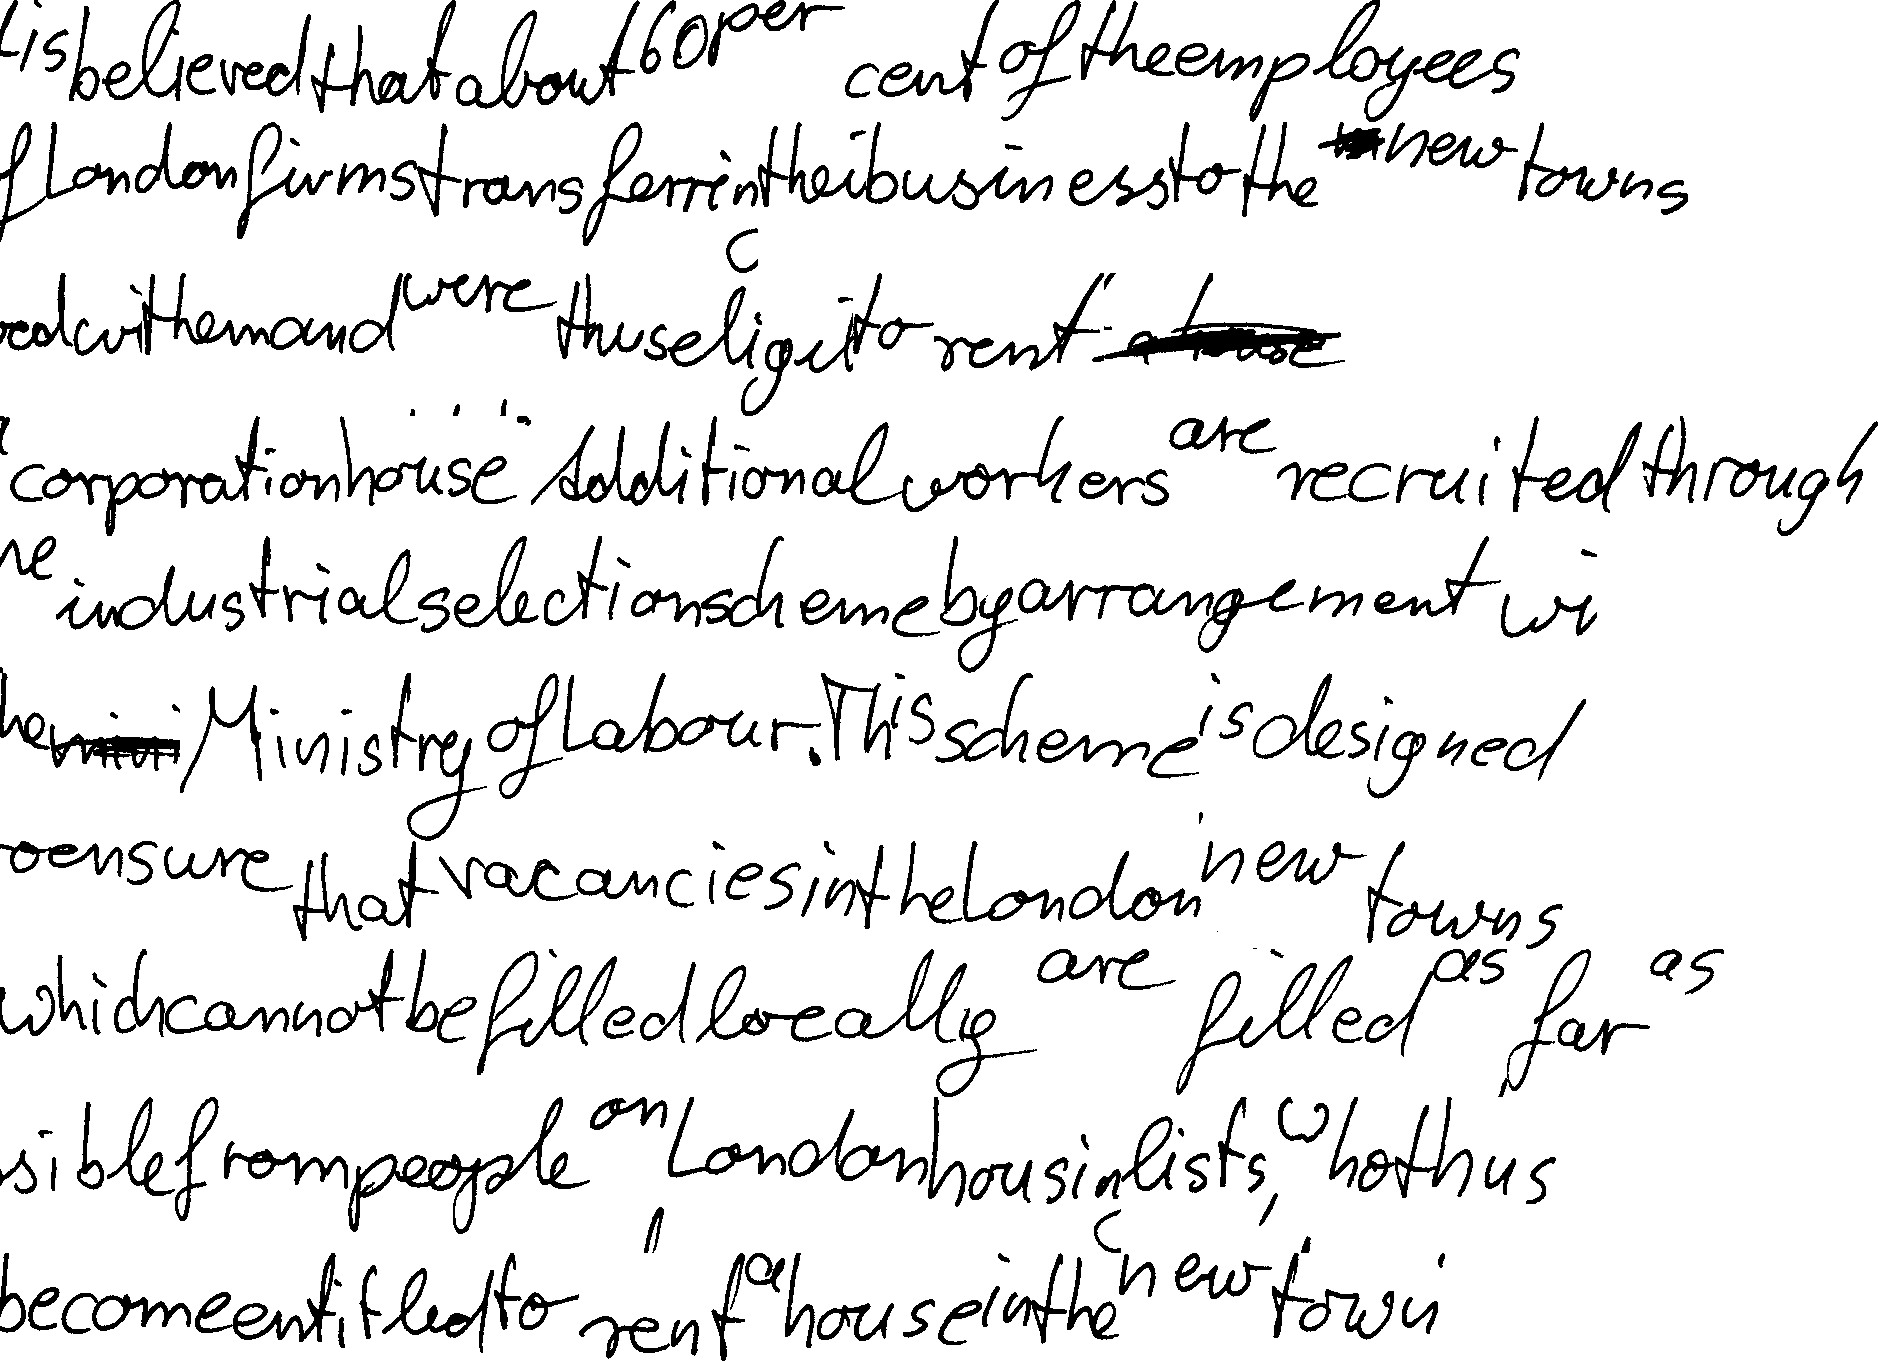 t is believed that about 60 per cent of the employees
f London firms transferrin thei business to the new towns
ved with them and were thus eligi to rent
" corporation house" Additional workers are recruited through
he industrial selection scheme by arrangement wi
he Ministry of Labour. This scheme is designed
o ensure that vacancies in the London new towns
which cannot be filled locally are filled as far as
sible from people on London housin lists, who thus
become entitled to rent a house in the new town